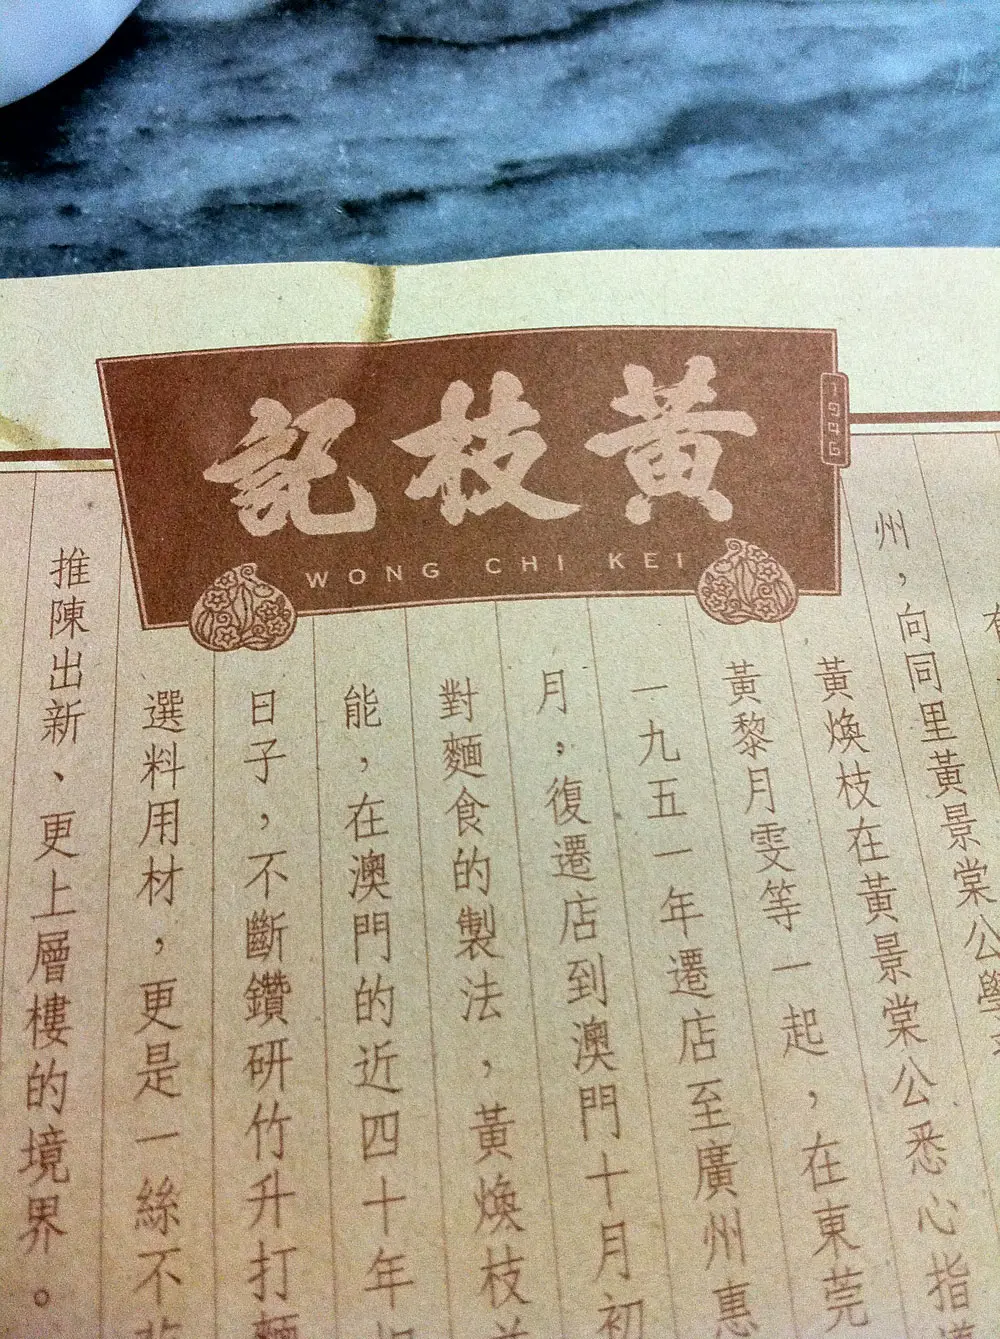 黃枝記
1946
WONG CHI KEI
州，向同里黃景棠公學
黃煥枝在黃景棠公悉心指
黃黎月雯等一起，在東莞
一九五一年遷店至廣州惠
月，復遷店到澳門十月初
對麵食的製法，黃煥枝
能，在澳門的近四十年
日子，不斷鑽研竹升打麵
選料用材，更是一絲不
推陳出新、更上層樓的境界。